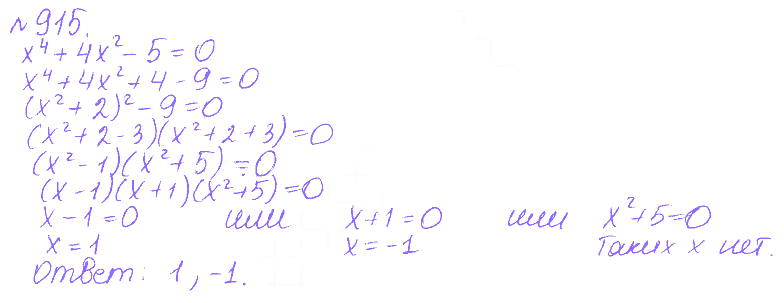 № 915.
x⁴ + 4x² - 5 = 0
x⁴ + 4x² + 4 - 9 = 0
(x² + 2)² - 9 = 0
(x² + 2 - 3)(x² + 2 + 3) = 0
(x² - 1)(x² + 5) = 0
(x - 1)(x + 1)(x² + 5) = 0
x - 1 = 0 или x + 1 = 0 или x² + 5 = 0
x = 1 x = -1 Таких x нет.
Ответ: 1, -1.